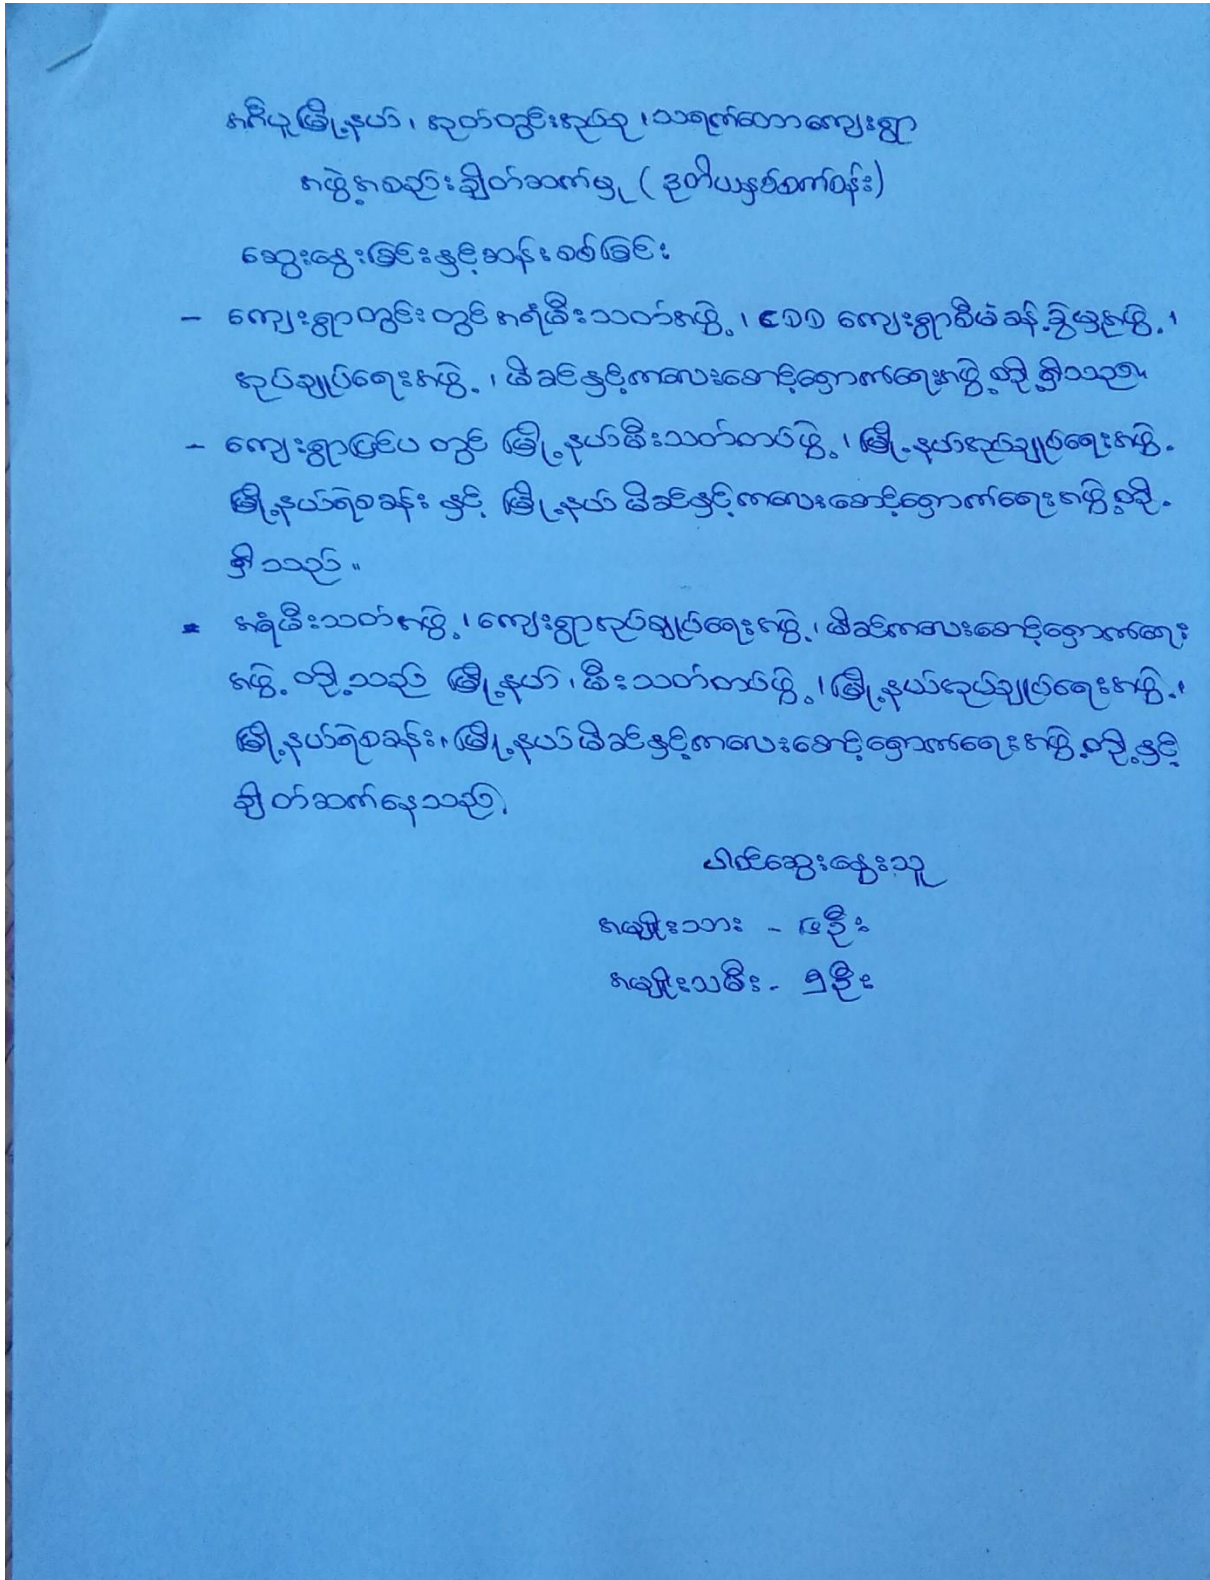 အင်္ဂပူမြို့နယ်၊ အုတ်တွင်းအုပ်စု၊ သရက်တောကျေးရွာ
အဖွဲ့အစည်းချိတ်ဆက်မှု (ဒုတိယနှစ်စက်ဝန်း)
ဆွေးနွေးခြင်းနှင့်ဆန်းစစ်ခြင်း
- ကျေးရွာတွင်းတွင် အရံမီးသတ်အဖွဲ့၊ CDD ကျေးရွာစီမံခန့်ခွဲမှုအဖွဲ့၊
အုပ်ချုပ်ရေးအဖွဲ့၊ မိခင်နှင့်ကလေးစောင့်ရှောက်ရေးအဖွဲ့တို့ရှိသည်။
- ကျေးရွာပြင်ပ တွင် မြို့နယ်မီးသတ်တပ်ဖွဲ့၊ မြို့နယ်အုပ်ချုပ်ရေးအဖွဲ့
မြို့နယ်ရဲစခန်း နှင့် မြို့နယ် မိခင်နှင့်ကလေးစောင့်ရှောက်ရေးအဖွဲ့တို့
ရှိသည်။
* အရံမီးသတ်အဖွဲ့၊ ကျေးရွာအုပ်ချုပ်ရေးအဖွဲ့၊ မိခင်ကလေးစောင့်ရှောက်ရေး
အဖွဲ့ တို့သည် မြို့နယ်၊ မီးသတ်တပ်ဖွဲ့၊ မြို့နယ်အုပ်ချုပ်ရေးအဖွဲ့၊
မြို့နယ်ရဲစခန်း၊ မြို့နယ်မိခင်နှင့်ကလေးစောင့်ရှောက်ရေးအဖွဲ့တို့နှင့်
ချိတ်ဆက်နေသည်။
ပါဝင်ဆွေးနွေးသူ
အမျိုးသား - ၉ဦး
အမျိုးသမီး - ၅ဦး